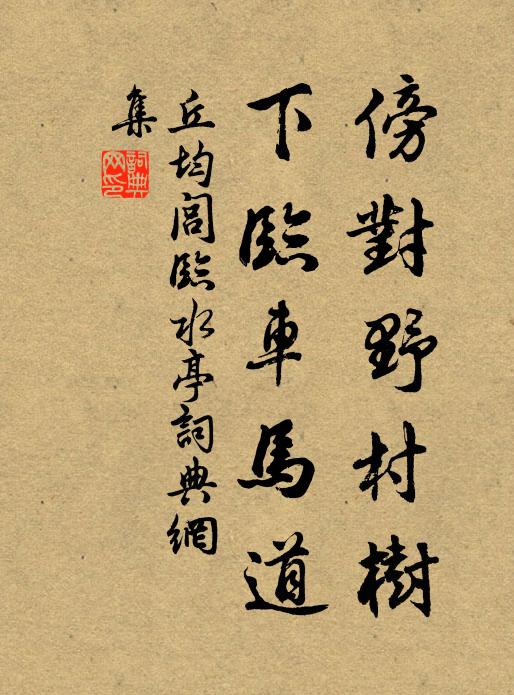 傍對野村樹
下臨車馬道
丘均閭臨水亭詞典網
集
詞典
网印